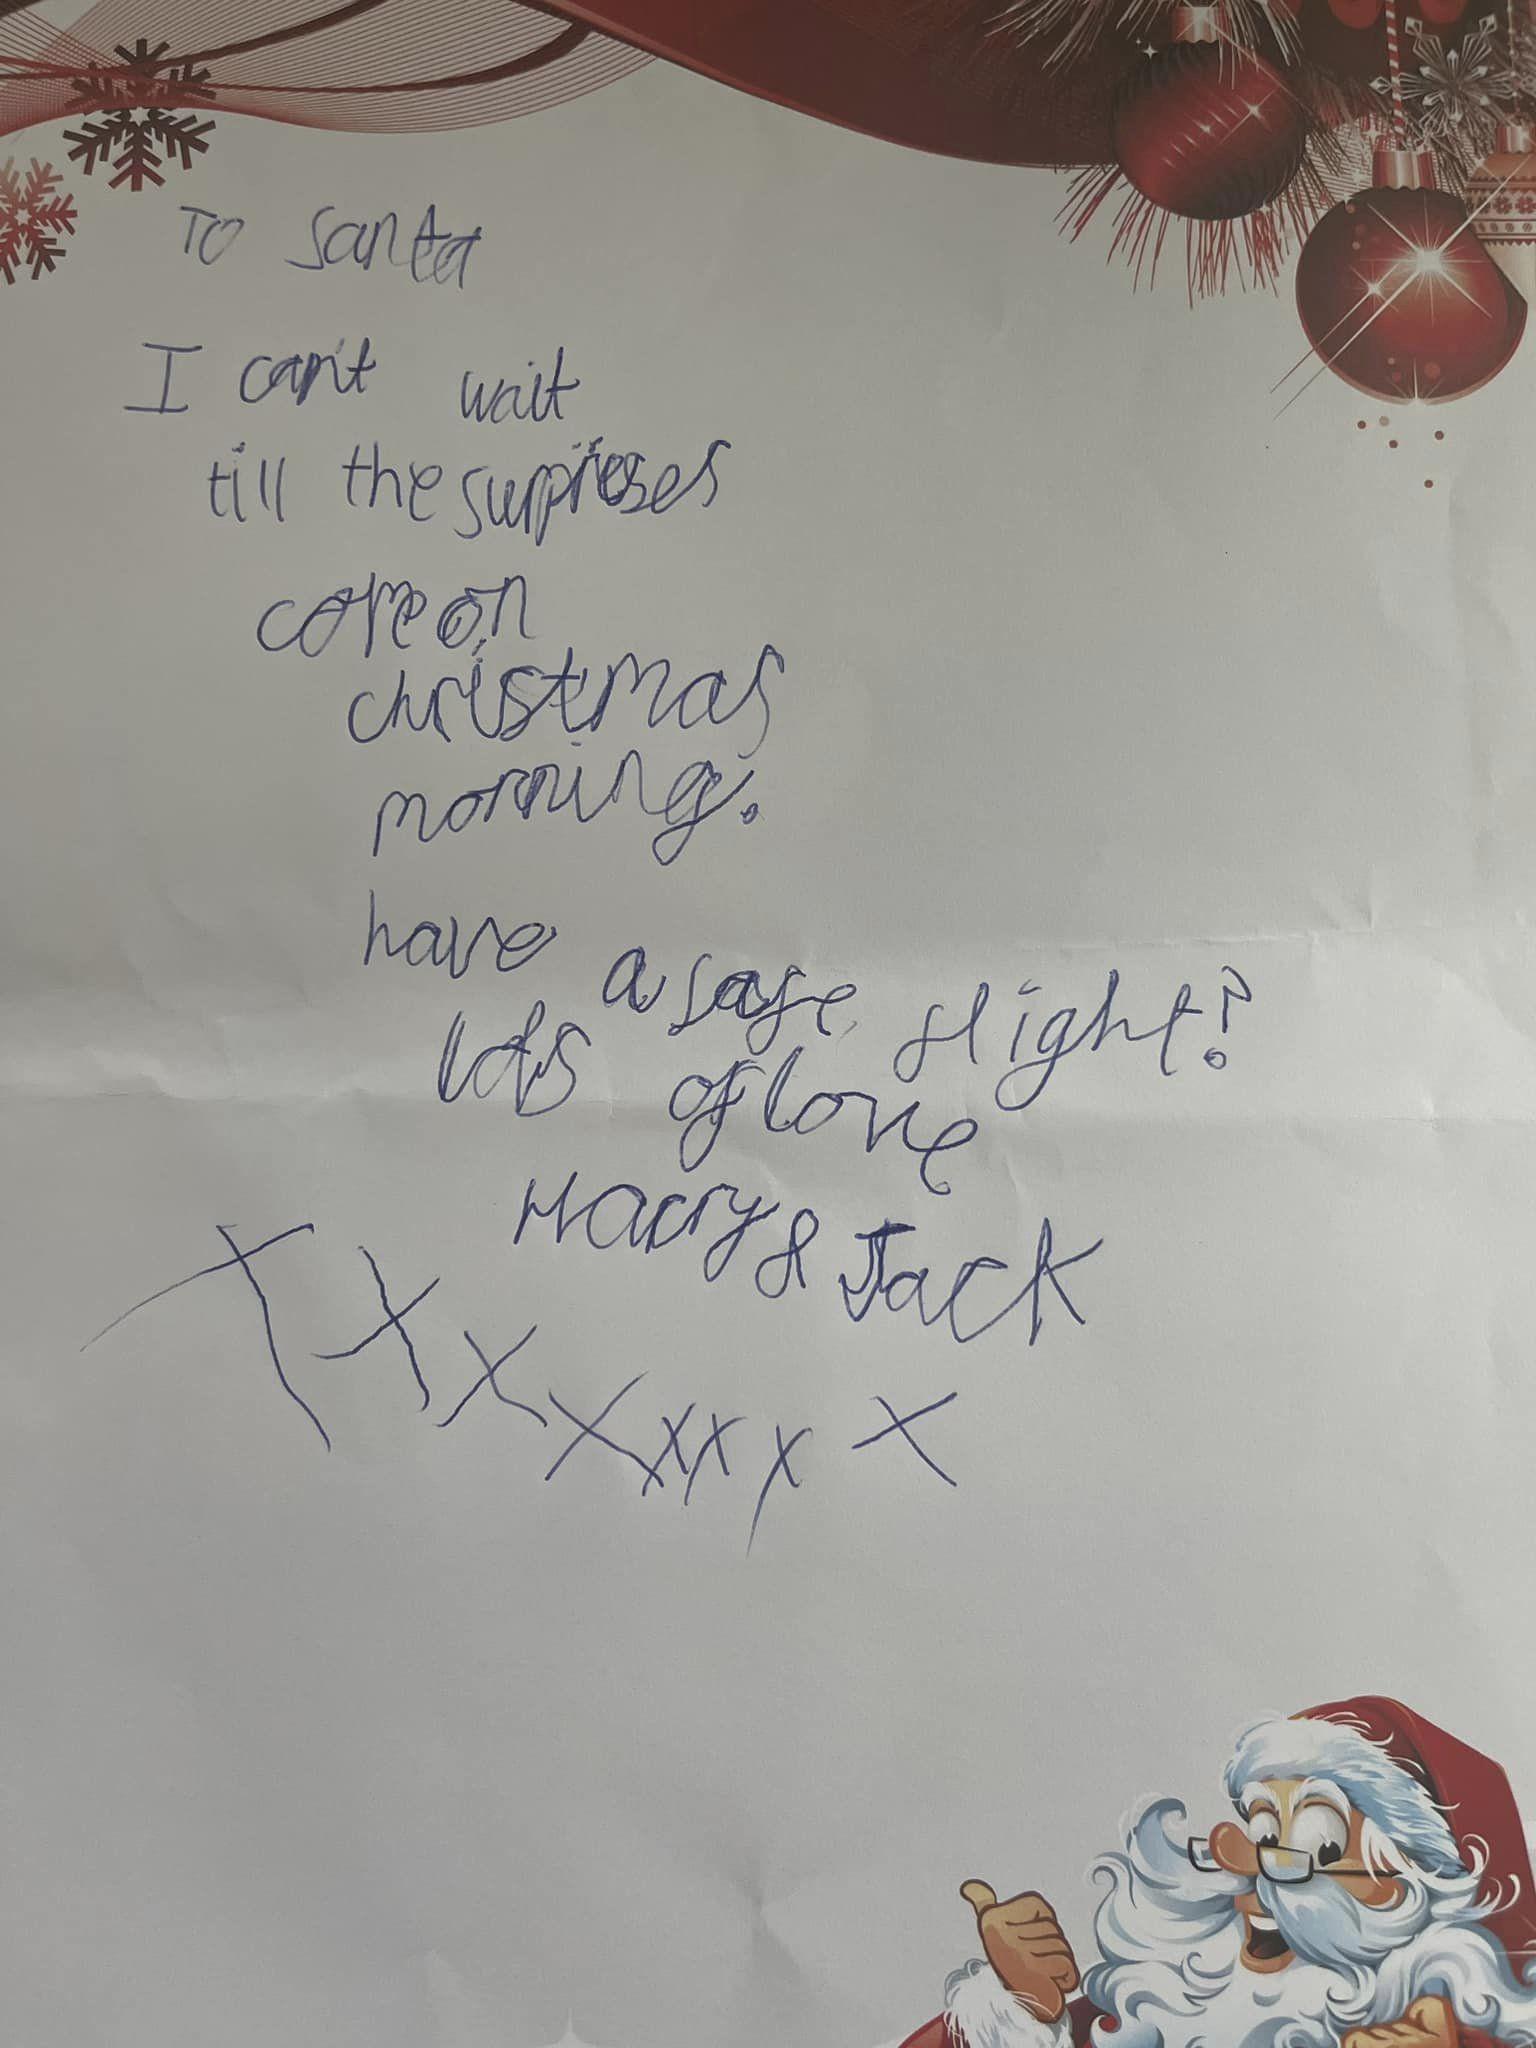 To Santa
I can't wait
till the surprises
come on
christmas
morning.
have a safe flight?
lots of love
Harry & Jack
X X X X x x x X